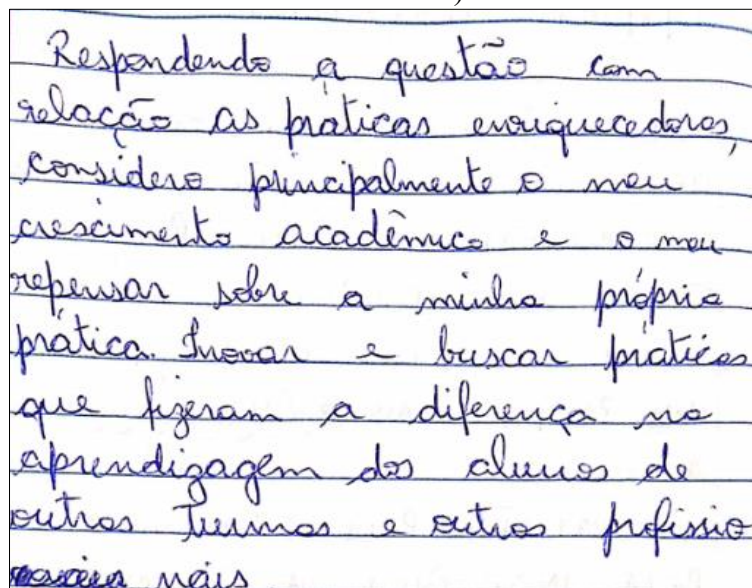 Respondendo a questão com
relação as práticas enriquecedoras,
considero principalmente o meu
crescimento acadêmico e o meu
repensar sobre a minha própria
prática. Inovar e buscar práticas
que fizeram a diferença na
aprendizagem dos alunos de
outras turmas e outros profissio
nais